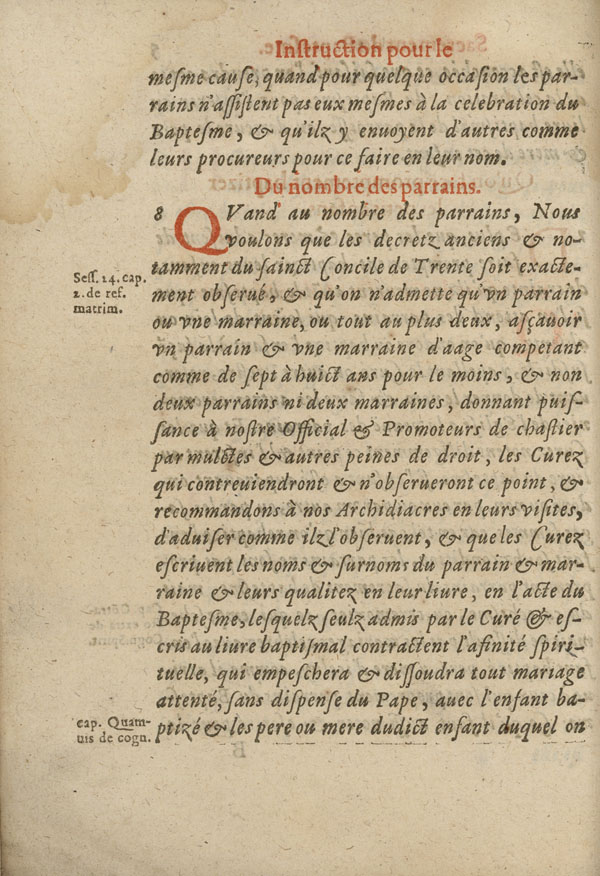 Inſtruction pour le
meſme cauſe, quand pour quelque occaſion les par-
rains n'aſſiſtent pas eux meſmes à la celebration du
Bapteſme, & qu'ilz y enuoyent d'autres comme
leurs procureurs pour ce faire en leur nom.
Du nombre des parrains.
8 QVand au nombre des parrains, Nous
voulons que les decretz anciens & no-
tamment du ſainct Concile de Trente ſoit exacte-
Seſſ. 24. cap.
2. de ref.
matrim.
ment obſerué, & qu'on n'admette qu'vn parrain
ou vne marraine, ou tout au plus deux, aſçauoir
vn parrain & vne marraine d'aage competant
comme de ſept à huict ans pour le moins, & non
deux parrains ni deux marraines, donnant puiſ-
ſance à noſtre Official & Promoteurs de chaſtier
par mulctes & autres peines de droit, les Curez
qui contreuiendront & n'obſerueront ce point, &
recommandons à nos Archidiacres en leurs viſites,
d'aduiſer comme ilz l'obſeruent, & que les Curez
eſcriuent les noms & ſurnoms du parrain & mar-
raine & leurs qualitez en leur liure, en l'acte du
Bapteſme, leſquelz ſeulz admis par le Curé & eſ-
cris au liure baptiſmal contractent l'afinité ſpiri-
tuelle, qui empeſchera & diſſoudra tout mariage
attenté, ſans diſpenſe du Pape, auec l'enfant ba-
ptizé & les pere ou mere dudict enfant duquel on
cap. Quam-
uis de cogn.